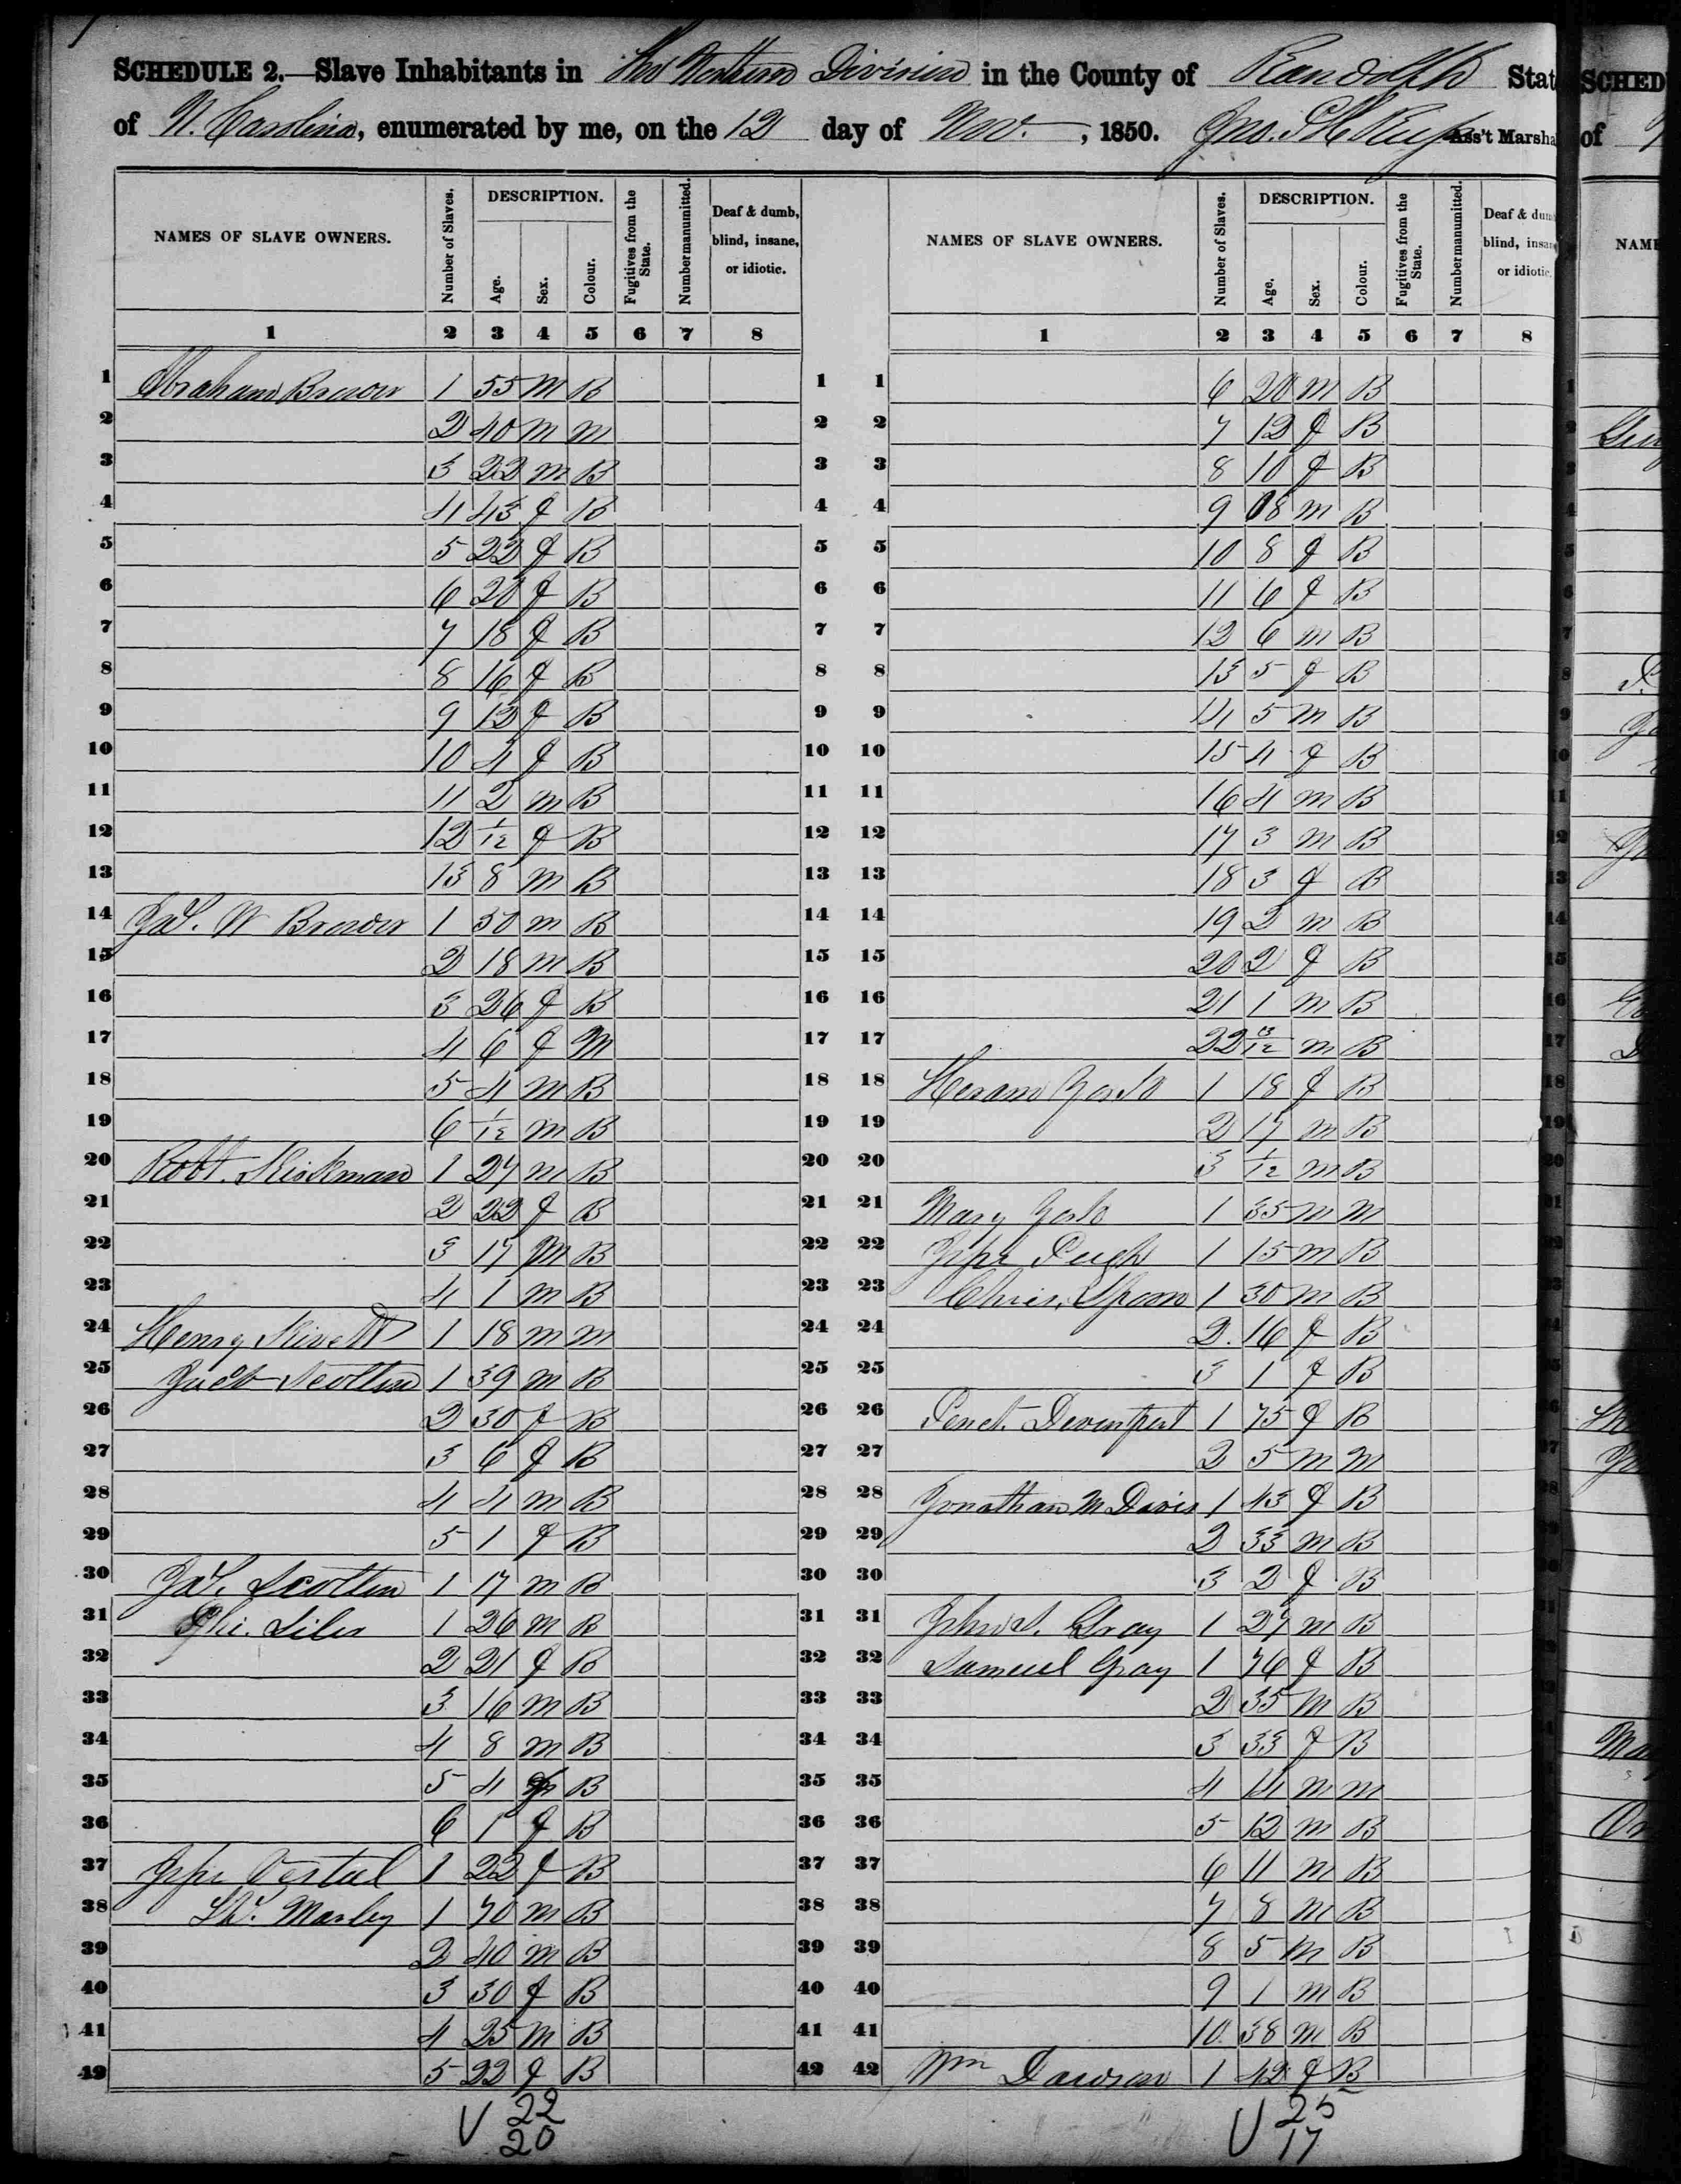 SCHEDULE 2.—Slave Inhabitants in The Northern Division in the County of Randolph Stat
of N. Carolina, enumerated by me, on the 12 day of Nov. , 1850. Ass't Marsha
NAMES OF SLAVE OWNERS. Number of Slaves. DESCRIPTION. Age. Sex. Colour. Fugitives from the State. Number manumitted. Deaf & dumb, blind, insane, or idiotic.
1 2 3 4 5 6 7 8
1 Abraham Brower 1 55 m B 1
2 2 40 m m 2
3 3 22 m B 3
4 4 43 f B 4
5 5 22 f B 5
6 6 20 f B 6
7 7 18 f B 7
8 8 16 f B 8
9 9 12 f B 9
10 10 4 f B 10
11 11 2 m B 11
12 12 1/12 f B 12
13 13 8 m B 13
14 Jas. W Brower 1 30 m B 14
15 2 18 m B 15
16 3 26 f B 16
17 4 6 f M 17
18 5 4 m B 18
19 6 1/12 m B 19
20 Robt. 1 27 m B 20
21 2 22 f B 21
22 3 17 m B 22
23 4 1 m B 23
24 Henry Kivett 1 18 m m 24
25 Jacob Scotten 1 39 m B 25
26 2 30 f B 26
27 3 6 f B 27
28 4 4 m B 28
29 5 1 f B 29
30 Jas. Scotten 1 17 m B 30
31 Siler 1 26 m B 31
32 2 21 f B 32
33 3 16 m B 33
34 4 8 m B 34
35 5 4 B 35
36 6 1 f B 36
37 Jesse Vestal 1 22 f B 37
38 Marley 1 70 m B 38
39 2 40 m B 39
40 3 30 f B 40
41 4 25 m B 41
42 5 22 f B 42
22
20
NAMES OF SLAVE OWNERS. Number of Slaves. DESCRIPTION. Age. Sex. Colour. Fugitives from the State. Number manumitted. Deaf & dum blind, insane or idiotic.
1 2 3 4 5 6 7 8
1 6 20 m B
2 7 12 f B
3 8 10 f B
4 9 8 m B
5 10 8 f B
6 11 6 f B
7 12 6 m B
8 13 5 f B
9 14 5 m B
10 15 4 f B
11 16 4 m B
12 17 3 m B
13 18 3 f B
14 19 2 m B
15 20 2 f B
16 21 1 m B
17 22 3/12 m B
18 Heram York 1 18 f B
19 2 17 m B
20 3 1/12 m B
21 Mary York 1 35 m m
22 Jesse Pugh 1 15 m B
23 Chris. Spoon 1 30 m B
24 2 16 f B
25 3 1 f B
26 Penct. Devenport 1 75 f B
27 2 5 m m
28 Jonathan M Davis 1 43 f B
29 2 33 m B
30 3 2 f B
31 John S. Gray 1 27 m B
32 Samuel Gray 1 76 f B
33 2 35 m B
34 3 33 f B
35 4 14 m m
36 5 12 m B
37 6 11 m B
38 7 8 m B
39 8 5 m B
40 9 1 m B
41 10 38 m B
42 Wm Dawson 1 42 f B
25
17
SCHED
of
NAME